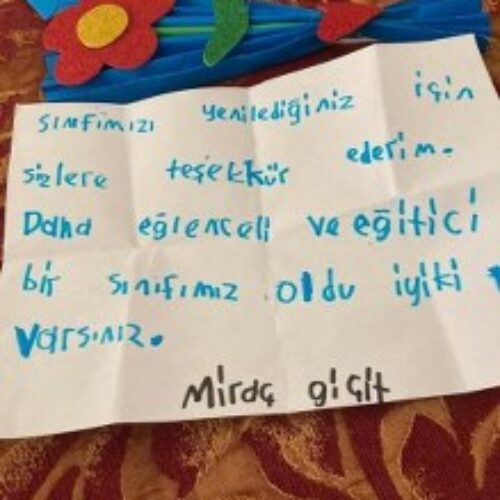 sınıfımızı yenilediğiniz için
sizlere teşekkür ederim.
Daha eğlenceli ve eğitici
bir sınıfımız oldu iyiki
varsınız.
Miraç